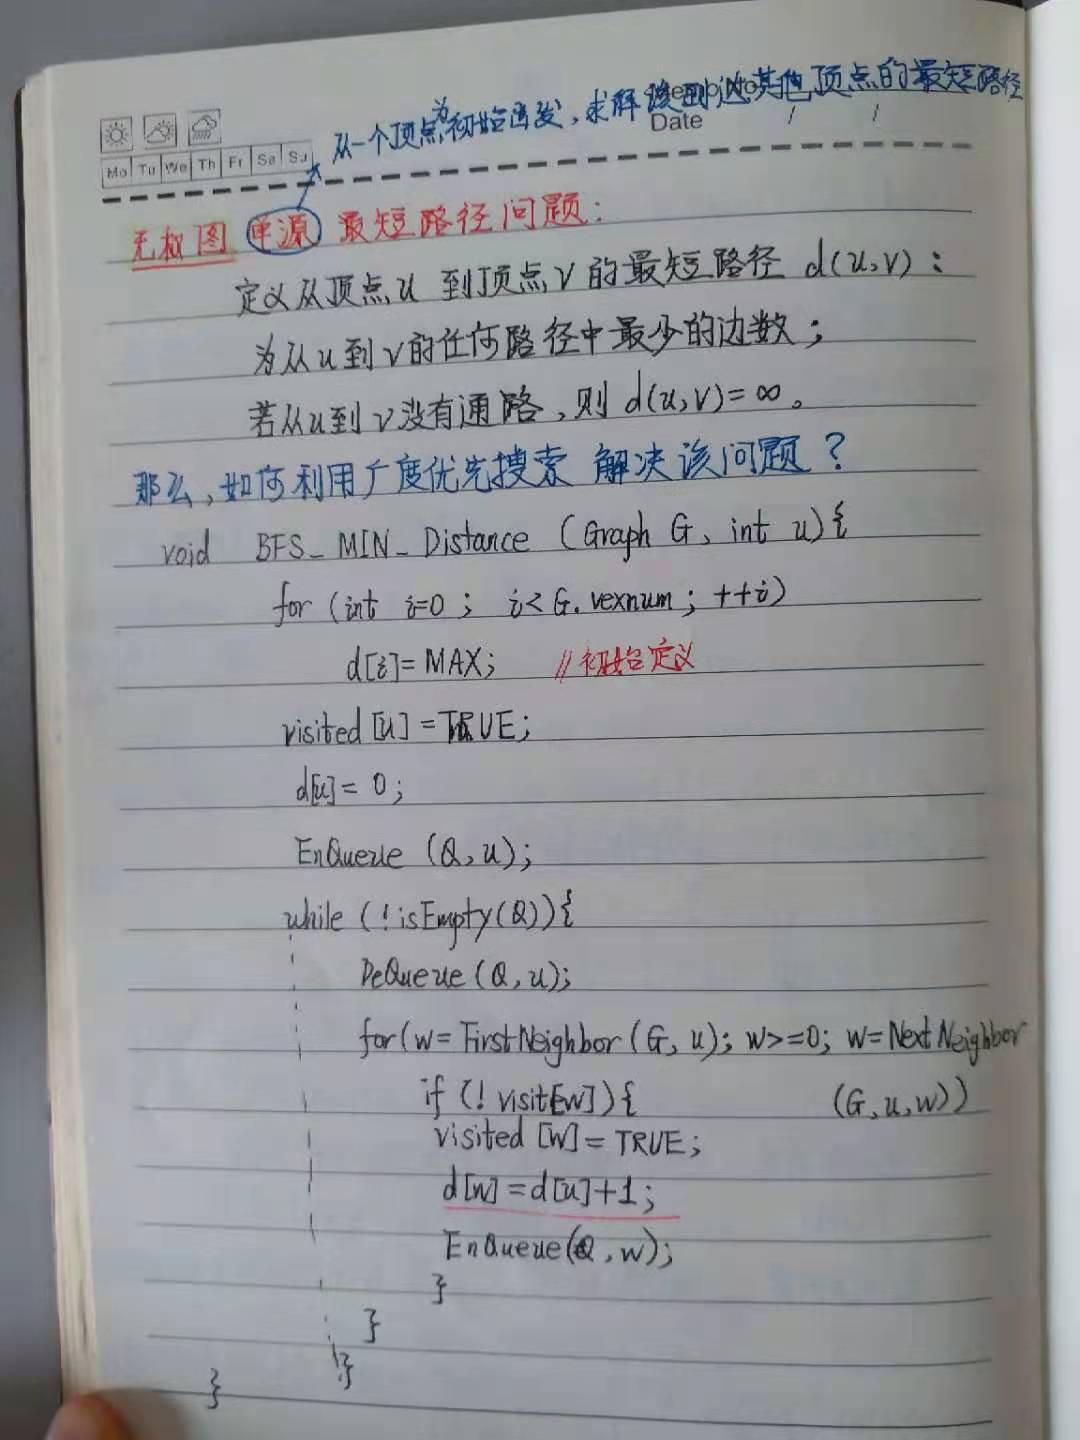 从一个顶点为初始出发，求解该到达其他顶点的最短路径
Date / /
Mo Tu We Th Fr Sa Su
无权图 单源 最短路径问题：
定义从顶点u 到顶点v 的最短路径 d(u,v)：
为从u到v的任何路径中最少的边数；
若从u到v没有通路，则 d(u,v)=∞。
那么，如何利用广度优先搜索 解决该问题？
void BFS_MIN_Distance (Graph G, int u){
for (int i=0; i<G.vexnum; ++i)
d[i]=MAX; //初始定义
visited[u]=TRUE;
d[u]=0;
EnQueue (Q,u);
while (!isEmpty(Q)){
DeQueue(Q,u);
for(w=FirstNeighbor(G,u); w>=0; w=NextNeighbor
if (!visit[w]){ (G,u,w))
visited[w]=TRUE;
d[w]=d[u]+1;
EnQueue(Q,w);
}
}
}
}